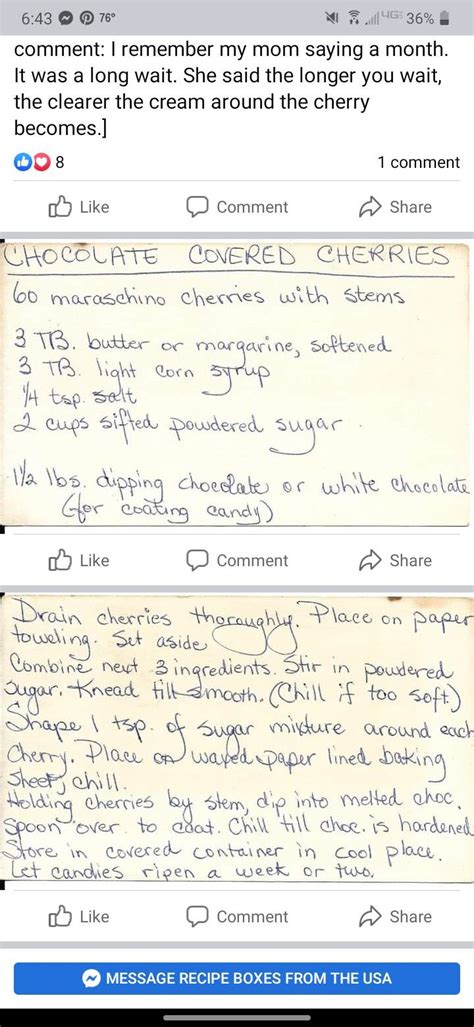 6:43 76° 4G 36%
comment: I remember my mom saying a month.
It was a long wait. She said the longer you wait,
the clearer the cream around the cherry
becomes.]
8 1 comment
Like Comment Share
CHOCOLATE COVERED CHERRIES
60 maraschino cherries with stems
3 TB. butter or margarine, softened
3 TB. light corn syrup
1/4 tsp. salt
2 cups sifted powdered sugar
1 1/2 lbs. dipping chocolate or white chocolate
(for coating candy)
Like Comment Share
Drain cherries thoroughly. Place on paper
toweling. Set aside
Combine next 3 ingredients. Stir in powdered
Sugar. Knead till smooth. (Chill if too soft.)
Shape 1 tsp. of sugar mixture around each
Cherry. Place on waxed paper lined baking
Sheet, chill.
Holding cherries by stem, dip into melted choc.
Spoon over to coat. Chill till choc. is hardened
Store in covered container in cool place.
Let candies ripen a week or two.
Like Comment Share
MESSAGE RECIPE BOXES FROM THE USA